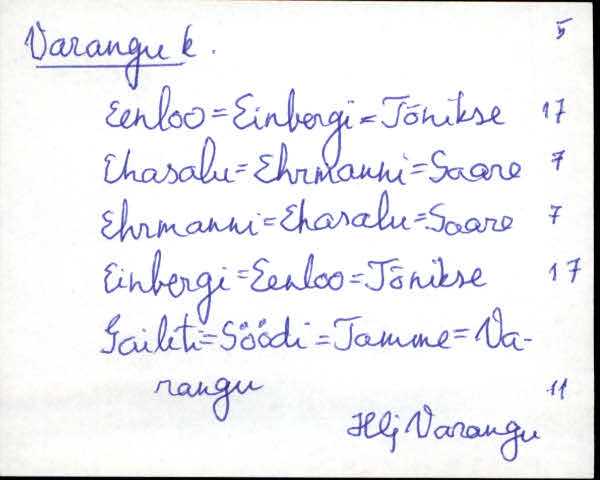 5
Varangu k.
Eenloo = Einbergi = Tõnikse 17
Ehasalu = Ehrmanni = Saare 7
Ehrmanni = Ehasalu = Saare 7
Einbergi = Eenloo = Tõnikse 17
= Söödi = Tamme = Va-
rangu 11
Hlj Varangu